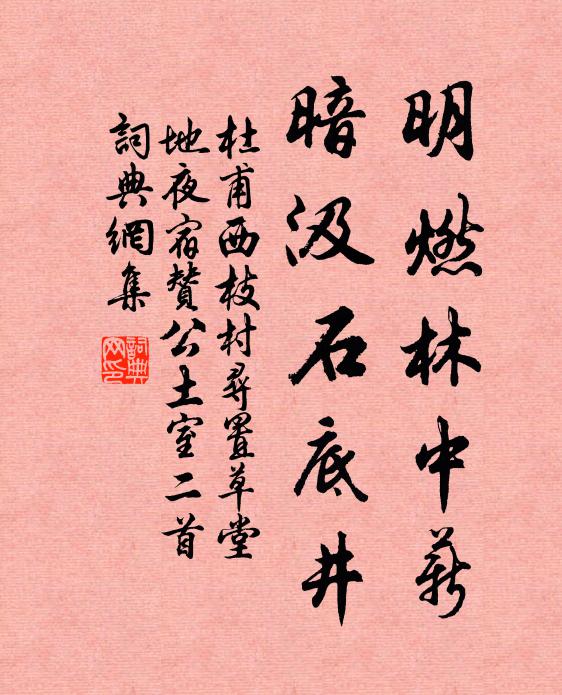 明燃林中薪
暗汲石底井
杜甫西枝村尋置草堂
地夜宿贊公土室二首
詞典網集
詞典
网印